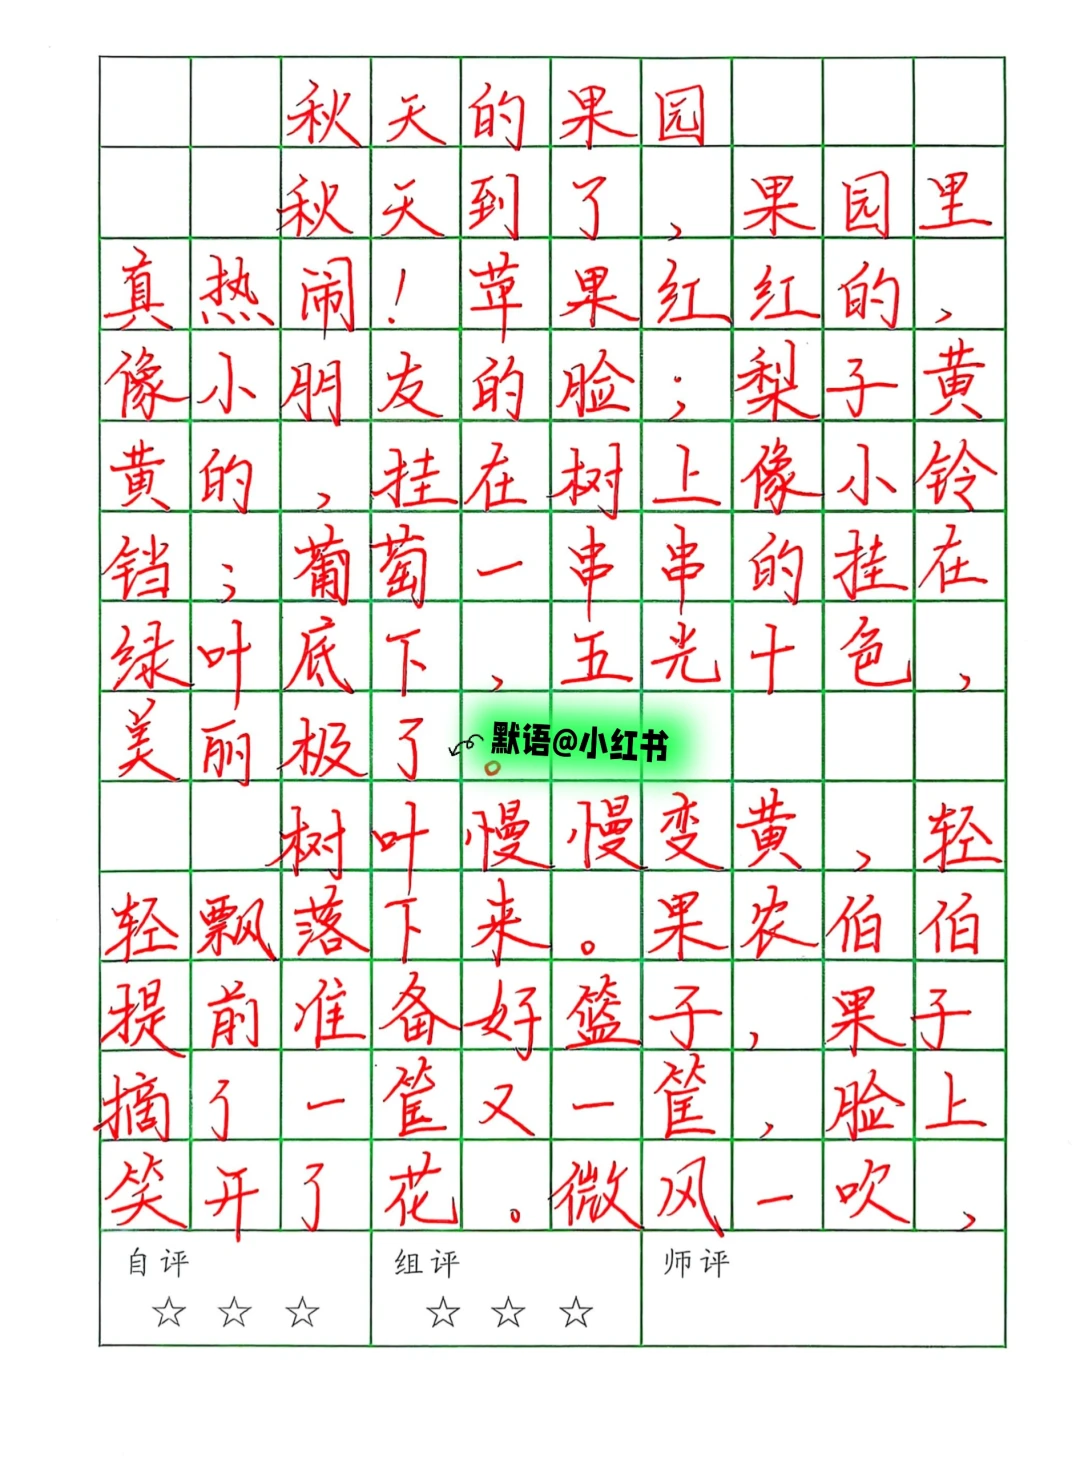 秋天的果园
秋天到了，果园里
真热闹！苹果红红的，
像小朋友的脸；梨子黄
黄的，挂在树上像小铃
铛；葡萄一串串的挂在
绿叶底下，五光十色，
美丽极了。
默语@小红书
树叶慢慢变黄，轻
轻飘落下来。果农伯伯
提前准备好篮子，果子
摘了一筐又一筐，脸上
笑开了花。微风一吹，
自评 组评 师评
☆ ☆ ☆ ☆ ☆ ☆